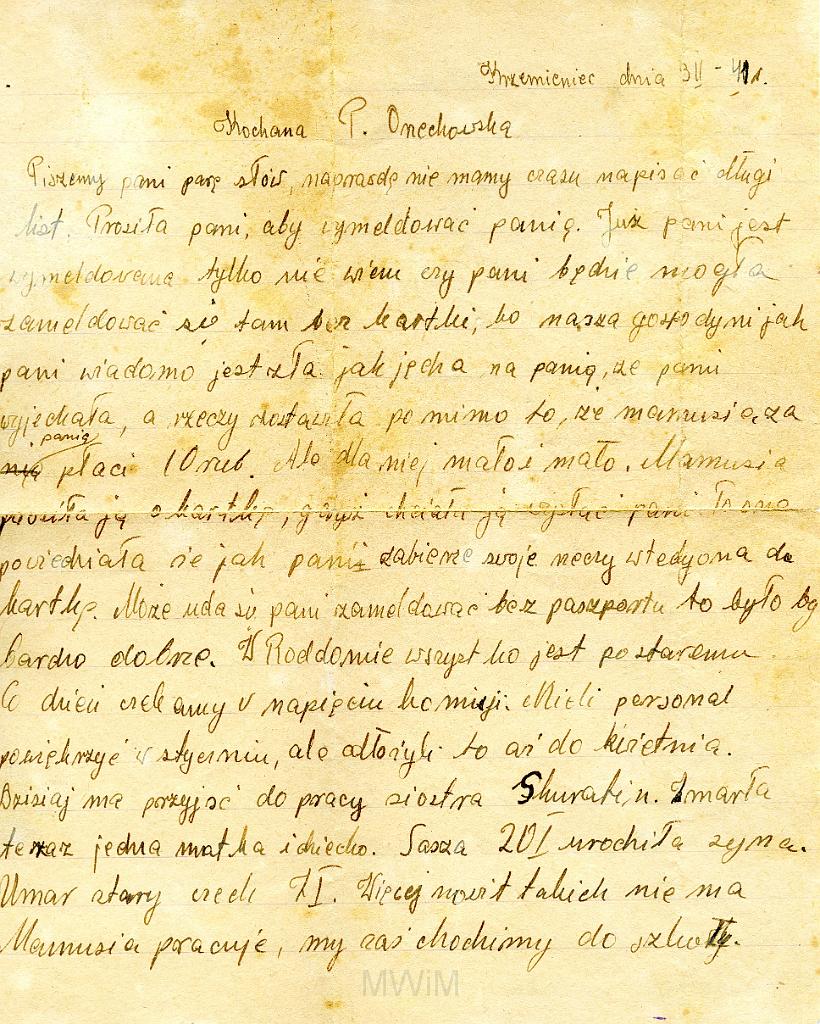 Krzemieniec dnia 3II - 41 r.
Kochana P. Onechowska
Piszemy pani parę słów, naprawdę nie mamy czasu napisać długi
list. Prosiła pani, aby wymeldować panią. Już pani jest
wymeldowana tylko nie wiem czy pani będzie mogła
zameldować się tam bez kartki, bo nasza gospodyni jak
pani wiadomo jest zła jak jędza na panią, że pani
wyjechała, a rzeczy zostawiła pomimo to, że mamusia za
panią
nią płaci 10 rub. Ale dla niej mało i mało. Mamusia
prosiła ją o kartkę, gdyż chciała ją wysłać pani to ona
powiedziała że jak pani zabierze swoje rzeczy wtedy ona da
kartkę. Może uda się pani zameldować bez paszportu to było by
bardzo dobrze. W Roddomie wszystko jest postaremu
Co dzień czekamy w napięciu komisji. Mieli personal
powiększyć w styczniu, ale odłożyli to aż do kwietnia.
Dzisiaj ma przyjść do pracy siostra Zmarła
teraz jedna matka i dziecko. Sasza 20I urodziła syna.
Umar stary czech I. Więcej nowit takich nie ma
Mamusia pracuje, my zaś chodzimy do szkoły.
MWiM